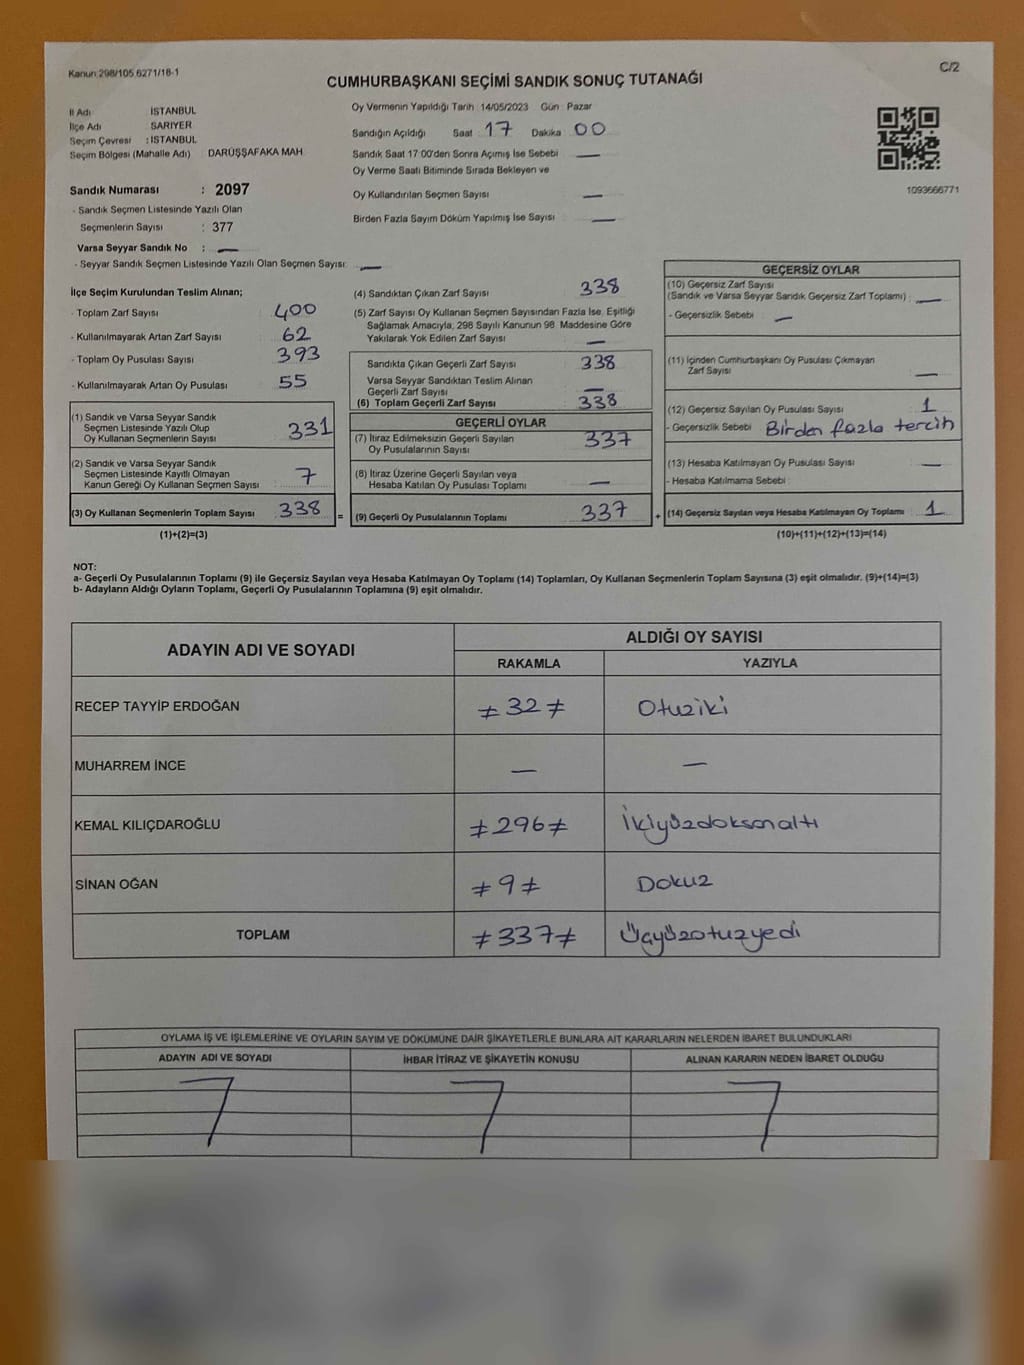 Kanun:298/105,6271/18-1
C/2
CUMHURBAŞKANI SEÇİMİ SANDIK SONUÇ TUTANAĞI
İl Adı : İSTANBUL
İlçe Adı : SARIYER
Seçim Çevresi : İSTANBUL
Seçim Bölgesi (Mahalle Adı) DARÜŞŞAFAKA MAH.
Sandık Numarası : 2097
- Sandık Seçmen Listesinde Yazılı Olan
Seçmenlerin Sayısı : 377
Varsa Seyyar Sandık No : —
- Seyyar Sandık Seçmen Listesinde Yazılı Olan Seçmen Sayısı: —
Oy Vermenin Yapıldığı Tarih : 14/05/2023 Gün : Pazar
Sandığın Açıldığı Saat : 17 Dakika 00
Sandık Saat 17:00'den Sonra Açımış İse Sebebi —
Oy Verme Saati Bitiminde Sırada Bekleyen ve
Oy Kullandırılan Seçmen Sayısı —
Birden Fazla Sayım Döküm Yapılmış İse Sayısı —
1093666771
İlçe Seçim Kurulundan Teslim Alınan;
- Toplam Zarf Sayısı : 400
- Kullanılmayarak Artan Zarf Sayısı : 62
- Toplam Oy Pusulası Sayısı : 393
- Kullanılmayarak Artan Oy Pusulası : 55
(1) Sandık ve Varsa Seyyar Sandık
Seçmen Listesinde Yazılı Olup
Oy Kullanan Seçmenlerin Sayısı : 331
(2) Sandık ve Varsa Seyyar Sandık
Seçmen Listesinde Kayıtlı Olmayan
Kanun Gereği Oy Kullanan Seçmen Sayısı : 7
(3) Oy Kullanan Seçmenlerin Toplam Sayısı : 338
(1)+(2)=(3)
(4) Sandıktan Çıkan Zarf Sayısı : 338
(5) Zarf Sayısı Oy Kullanan Seçmen Sayısından Fazla İse, Eşitliği
Sağlamak Amacıyla, 298 Sayılı Kanunun 98. Maddesine Göre
Yakılarak Yok Edilen Zarf Sayısı : —
Sandıkta Çıkan Geçerli Zarf Sayısı : 338
Varsa Seyyar Sandıktan Teslim Alınan
Geçerli Zarf Sayısı : —
(6) Toplam Geçerli Zarf Sayısı : 338
GEÇERLİ OYLAR
(7) İtiraz Edilmeksizin Geçerli Sayılan
Oy Pusulalarının Sayısı : 337
(8) İtiraz Üzerine Geçerli Sayılan veya
Hesaba Katılan Oy Pusulası Toplamı : —
= (9) Geçerli Oy Pusulalarının Toplamı : 337
GEÇERSİZ OYLAR
(10) Geçersiz Zarf Sayısı
(Sandık ve Varsa Seyyar Sandık Geçersiz Zarf Toplamı) : —
- Geçersizlik Sebebi : —
(11) İçinden Cumhurbaşkanı Oy Pusulası Çıkmayan
Zarf Sayısı : —
(12) Geçersiz Sayılan Oy Pusulası Sayısı : 1
- Geçersizlik Sebebi : Birden fazla tercih
(13) Hesaba Katılmayan Oy Pusulası Sayısı : —
- Hesaba Katılmama Sebebi :
+ (14) Geçersiz Sayılan veya Hesaba Katılmayan Oy Toplamı : 1
(10)+(11)+(12)+(13)=(14)
NOT:
a- Geçerli Oy Pusulalarının Toplamı (9) ile Geçersiz Sayılan veya Hesaba Katılmayan Oy Toplamı (14) Toplamları, Oy Kullanan Seçmenlerin Toplam Sayısına (3) eşit olmalıdır. (9)+(14)=(3)
b- Adayların Aldığı Oyların Toplamı, Geçerli Oy Pusulalarının Toplamına (9) eşit olmalıdır.
ADAYIN ADI VE SOYADI
ALDIĞI OY SAYISI
RAKAMLA YAZIYLA
RECEP TAYYİP ERDOĞAN ≠32≠ Otuziki
MUHARREM İNCE — —
KEMAL KILIÇDAROĞLU ≠296≠ İkiyüzdoksanaltı
SİNAN OĞAN ≠9≠ Dokuz
TOPLAM ≠337≠ Üçyüzotuzyedi
OYLAMA İŞ VE İŞLEMLERİNE VE OYLARIN SAYIM VE DÖKÜMÜNE DAİR ŞİKAYETLERLE BUNLARA AİT KARARLARIN NELERDEN İBARET BULUNDUKLARI
ADAYIN ADI VE SOYADI İHBAR İTİRAZ VE ŞİKAYETİN KONUSU ALINAN KARARIN NEDEN İBARET OLDUĞU